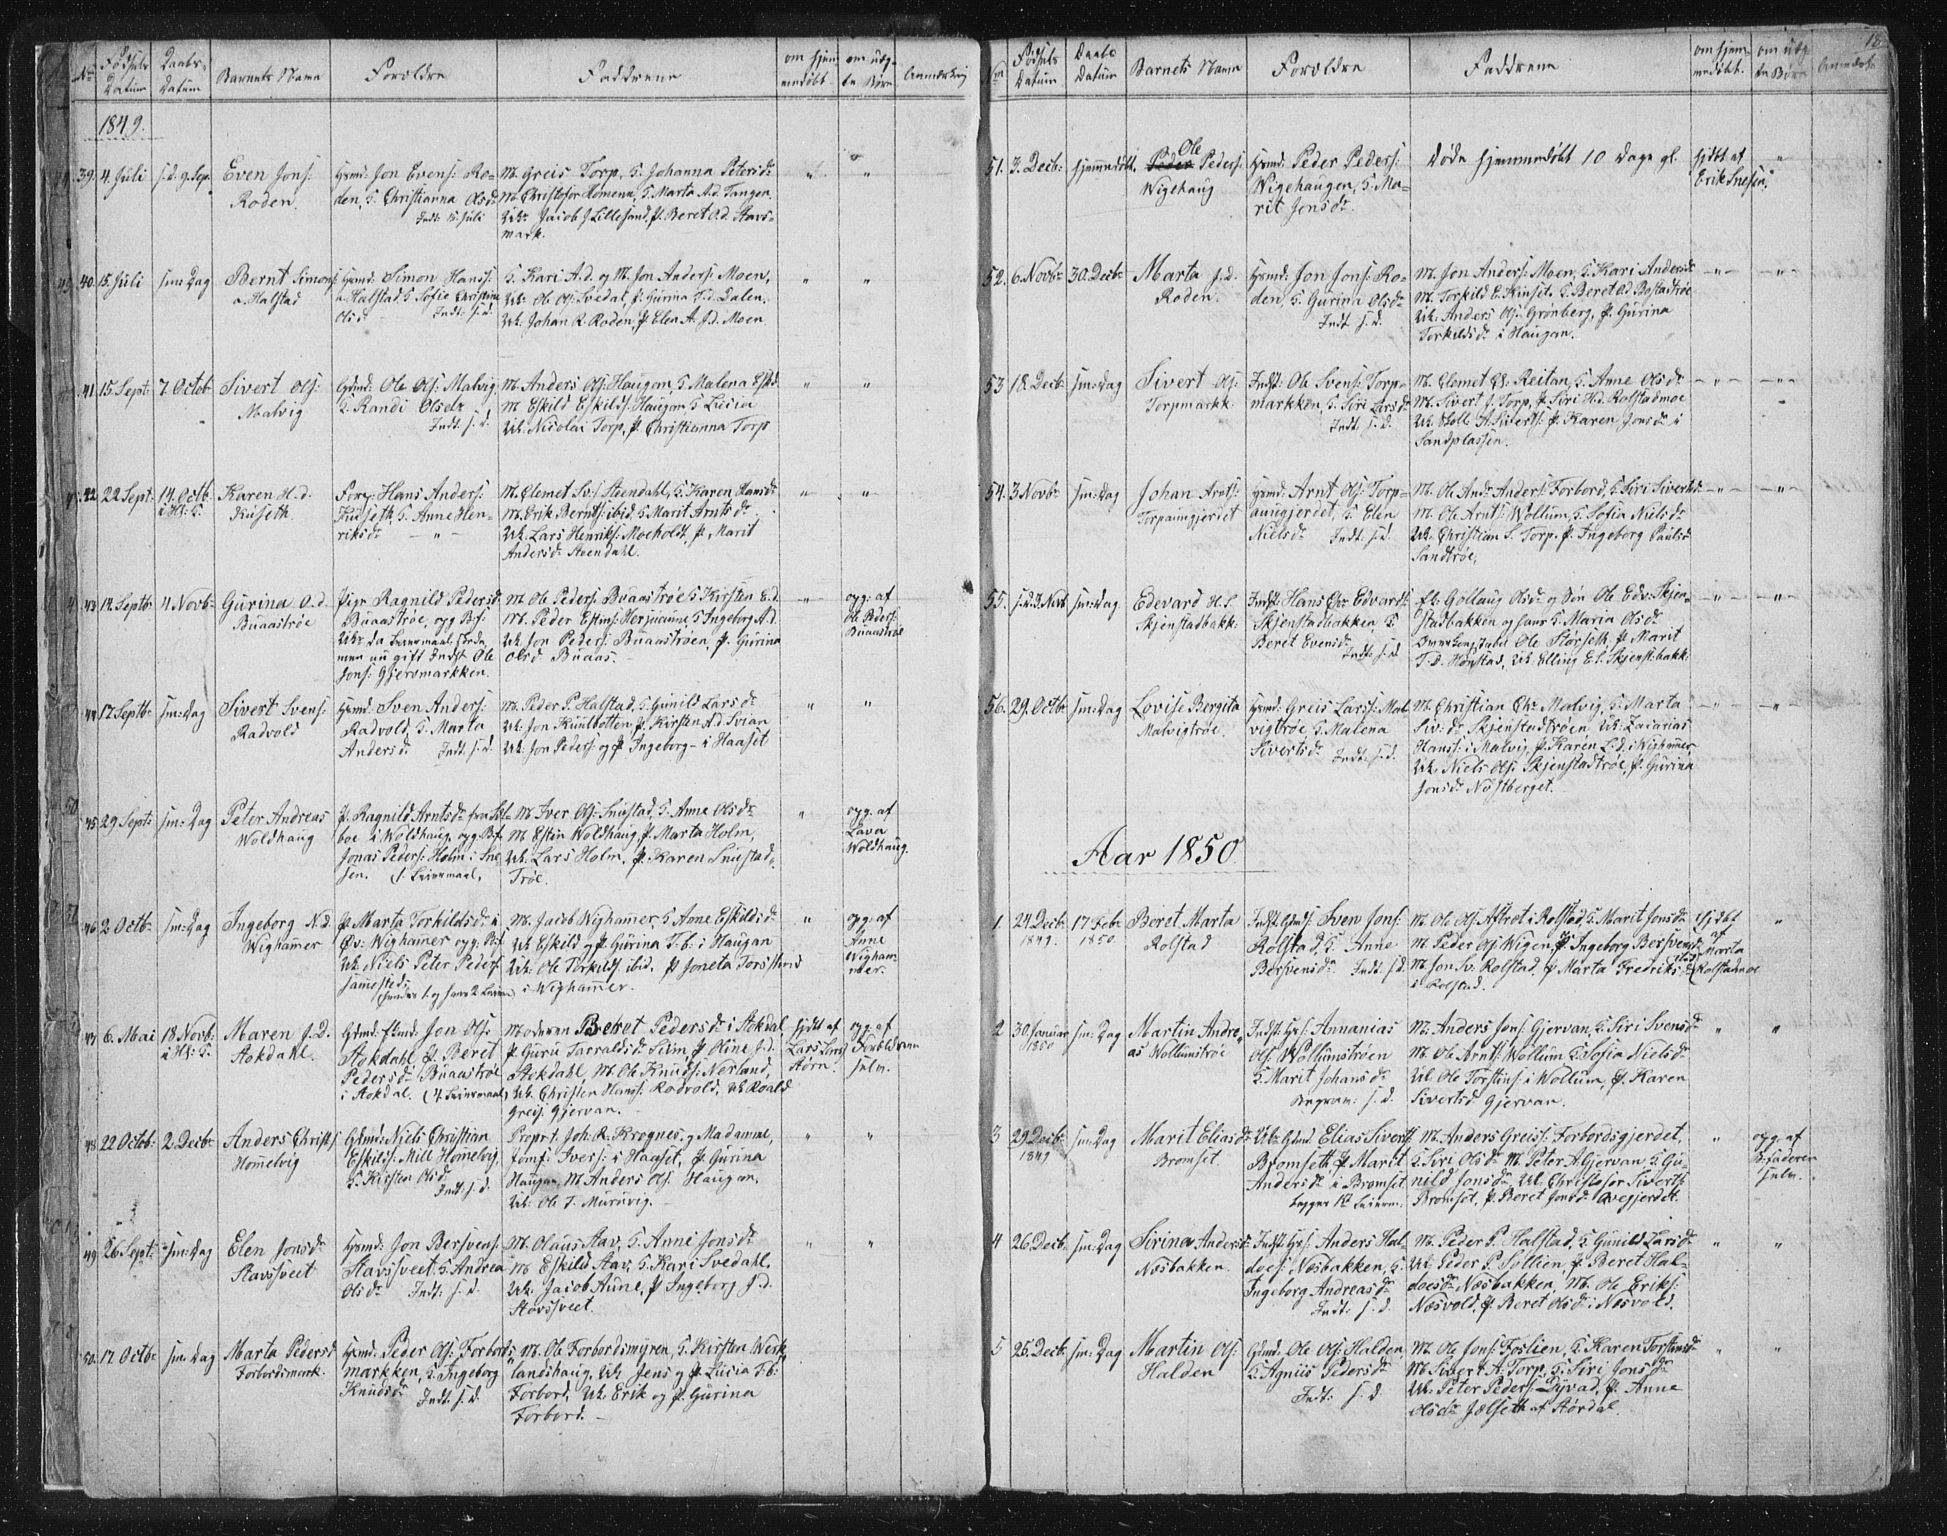 No
Fødsels Datum
Daabs-Datum
Barnets Navn
Forældre
Faddrene
om hjemmedøbt.
om uægte Børn
Anmærkng
1849.
39. 4. Juli
s. d. 9. Sep.
Even Jons:
Roden.
Hsmd: Jon Evens: Ro-
den, S. Christianna Olsdr
Indt. 15 Juli
M. Greis Torp, S. Johanna Petersdr
M. Christofer Homena, S. Marta A.d. Tangen
Uk: Jacob J Lillesand, P. Beret O.d. Stavs-
mark.
40. 15. Juli
sm: Dag
Bernt Simons:
a Halstad
Hsmd: Simon Hans:
a Halstad S. Sofie Christine
Ols d. Indt: s. d.
S. Kari A.d. og M. Jon Anders: Moen,
Uk: Ole Ols: Svedal, P. Gurina T.d. Dalen.
Uk: Johan R. Roden, P. Elen A. J.d. Moen
41 15. Sept:
7. Octob:
Sivert Ols:
Malvig
Gdmd: Ole Ols: Malvig
S. Randi Olsdr
Indt. s. d.
M. Anders Ols: Haugan, S. Malena Esk.d.
M. Eskild Eskilds: Haugan, S. Lucia
Uk. Nicolai Torp, P. Christianna Torp
42 22 Sept:
14. Octb:
i Hl: K.
Karen H. d.
Kuseth
Forp: Hans Anders:
Kuseth, S. Anne Hen-
riksdr
M. Clemet Sv: Steendahl, S. Karen Hansdr
M. Erik Bernts: ibid S. Marit Arntsdr
Uk. Lars Henriks: Moeholdt, P. Marit
Andersdr Steendahl.
43 14. Septb:
4. Novb:
Gurina O. d.
Buaastrøe
Pige Ragnild Pedersdr
Buaastrøe, opg. B.f.
Jons: Gjervsmarkken.
M. Ole Peders: Buaastrøe, S. Kirsten E.d.
Uk. Jon Peders: Buaastrøen, P. Gurina
Olsd Buaas.
opg. af
Ole Peders:
Buaastrøe
44 17. Septb:
sm: Dag
Sivert Svens:
Radvold
Hsmd: Sven Anders:
Radvold, S. Marta
Andersd: Indt: s. d.
M. Peder P. Halstad, S. Gunild Larsdr
Uk. Jon Kuulbotten, P. Kirsten A.d. Svian
Uk. Jon Peders: og P. Ingeborg - i Haaset
45 29 Sept:
sm: Dag
Peter Andreas
Woldhaug
P. Ragnild Arntsdr fra Sel-
boe i Woldhaug, opg. B.f.
Jonas Peders: Holm i Sne
sen. 1. Leiermaal.
M. Iver Ols: Snustad, S. Anne Olsdr
M. Estin Woldhaug P. Marta Holm,
Uk. Lars Holm, P. Karen Snustad
Trøe.
opg. af
Lava
Woldhaug.
46 2 Octb:
sm: Dag
Ingeborg N. d.
Wighamer
P. Marta Torkildsdr i
Øv: Wighamer opg. B.f.
Uk. Niels Peter Peders:
sammesteds
M. Jacob Wighamer, S. Anne Eskildsdr
Uk. Eskild og P. Gurina T.b: i Haugan
Uk. Ole Torkilds: ibid, P. Joneta Torstensd
i Wighamer.
opg. af
Anne
Wigham-
mer.
47 6. Mai
18. Novb:
i Hl: K.
Maren J. D.
Stokdahl.
Gdmd: Jon Ols:
Stokdahl P. Beret
Pedersdr Buaastrøe
i Stokdal. (1. Leiermaal)
Moderen Beret Pedersdr i Stokdal
P. Guru Tarraldsdr Siem, P. Oline J.d.
Stokdahl M. Ole Knuds: Norland,
Uk. Christen Hans: Rodvold, Uk Roald
Greis: Gjervan.
hjdøbt af
48 22 Octob:
2. Decbr
Anders Christs:
Homelvig
Gdmd: Niels Christian
Eskilds: Mill Homelvig,
S. Kirsten Olsdr
Indt. s. d.
Propr.t. Joh: R. Krognes, g Madamme,
Jomf: Ivers: i Haaset, P. Gurina
Haugan, M. Anders Ols: Haugan,
Uk: Ole T. Muruvig.
49 26 Sept:
sm: Dag
Elen Jonsdr
Stavssveet
Hsmd: Jon Bersvens:
Stavssveet, S. Andrea
Olsdr Indt: s. d.
M. Olaus Stav, S. Anne Jonsdr
M. Eskild Stav, S. Kari Svedahl.
Uk. Jacob Aune, P Ingeborg J.d.
Stavssveet.
50. 17. Octb:
sm: Dag
Marta Pedersd
Forbordsmark.
Hsmd: Peder Ols: Forbords
markken, S. Ingeborg
Knudsdr Indt: s. d.
M. Ole Forbordsmyren, S. Kirsten Werk
landshaug, Uk Jens og P. Lucia T.b:
Forbord, Uk. Erik og P. Gurina
Forbord.
18
No
Fødsels Datum
Daabs Datum
Barnets Navn
Forældre
Faddrene
om hjemmedøbt.
om uægte Børn
51. 3. Decb:
hjemmedøbt.
Ole
Peder Peders:
Wigehaug
Hsmd: Peder Peders:
Wigehaugen, S. Ma-
rit Jonsdr.
Døde hjemmedøbt 10 Dage gl.
hjdøbt af
Erik Snesen
52. 6. Novb:
30. Decb:
Marta J. d.
Roden.
Hsmd: Jon Jons: Ro-
den, S. Gurina Olsdr
Indt. s. d.
M. Jon Anders: Moen, S. Kari Andersdr
M. Torkild E. Kinset, S. Beret O.d. Bostadtrøe
Uk: Anders Ols: Grønberg, P. Gurina
Torkildsdr i Haugan.
53 18. Decb:
sm: Dag
Sivert Ols:
Torpmarkk:
Indst: Ole Svens: Torp-
markken, S. Siri Larsdr
Indt: s. d.
M. Clemet El. Reitan, S. Anne Olsdr
M. Sivert J. Torp, P. Siri H.d. Rolstadmoe
P. Karen Jonsdr i
Sandplassen.
54. 3 Novb:
sm: Dag
Johan Arnts:
Torpaungjerdet
Hsmd: Arnt Ols: Torp-
aungjerdet, S. Elen
Nielsdr Indt: s. d.
M. Ole Andr Anders: Forbord, S. Siri Sivertsdr
M. Ole Arnts: Wollum, S. Sofia Nielsdr
Uk. Christian S. Torp. P. Ingeborg Paulsd
Sandtrøe,
55. s. d. 3. Novb
sm: Dag
Edevard H. S.
Skjenstadbakk:
Indst: Hans Chr Edvards:
Skjenstadbakken S.
Beret Evensdr
Indt: s. d
E. Gollaug Olsdr og Søn Ole Edv: Skjen-
stadbakken og hans S. Maria Olsdr
Ole Storseth, P. Marit
T. D. Hønstad, Uk. Elling E. S. Skjenst:bakk:
56. 29. Octb:
sm: Dag
Lovise Bergita
Malvigtrøe.
Hsmd: Greis Lars: Mal
vigtrøe, S. Malena
Sivertsdr Indt: s. d.
M. Christian Chr. Malvig, S. Marta
Siv: dr Skjenstadtrøen Uk: Zacarias
Hans: i Malvig, P. Karen L. d. i Wighamer
Uk. Niels Ols: Skjenstadtrøe, P. Gurina
Jonsdr Nøstberget.
Aar 1850
1 24 Decb:
1849.
17 Febr
1850.
Beret Marta
Rolstad
Indst. Gdmd: Sven Jons:
Rolstad, S. Anne
Bersvensdr. Indt: s. d.
M. Ole Ols: Aftret i Rolstad, S. Marit Jonsdr
M. Peder Ols: Wigen, P. Ingeborg Bersvensdr
M. Jon Sv. Rolstad, P. Marta Fredriksdr
i Rolstad.
hjdøbt
af
Marta
Rolstadmoe
2 30 Januar
1850
sm: Dag
Martin Andre-
as Wollumstrøe
Indst. Hs: Annanias
Ols: Wollumstrøen
S. Marit Johansdr
Begravn: s. d.
M. Anders Jons: Gjervan, S. Siri Svensdr
M. Ole Arnts: Wollum S. Sofia Nielsdr
Uk. Ole Torstins: i Wollum, P. Karen
Sivertsd Gjervan.
3 29 Decb:
1849
sm: Dag
Marit Eliasdr
Bromset.
Uk: Gdmd: Elias Siverts:
Bromseth, P. Marit
Andersdr i Bromset
Begges 1te Leierm.
M. Anders Greis: Forbordsgjerdet,
S. Siri Olsdr M. Peter A. Gjervan S. Gu-
nild Jonsdr, Uk. Christofer Siverts:
Bromset, P. Beret Jonsdr Avegjerdet.
opg. af
B.faderen
selv.
4 26. Decb:
sm: Dag
Sirina Andersdr
Næsbakken.
Indst: Hs: Anders Hal-
does: Næsbakken, S.
Ingeborg Andreasdr
Indt: s. d
M. Peder P. Halstad, S. Gunild Larsdr
Uk. Peder P. Sollien, P. Beret Hal-
doesdr Næsbakken, M. Ole Eriks:
Næsvold, P. Beret Olsdr i Næsvold.
5 25. Decb:
sm: Dag
Martin Ols:
Halden
Gdmd: Ole Ols: Halden
S. Agniis Pedersdr
Indt: s. d
M. Ole Jons: Foslien, S. Karen Torstinsd
M. Sivert A. Torp, S. Siri Jonsdr
Uk. Peter Peders: Dyvad, P. Anne
Olsdr Jelseth af Størdal.